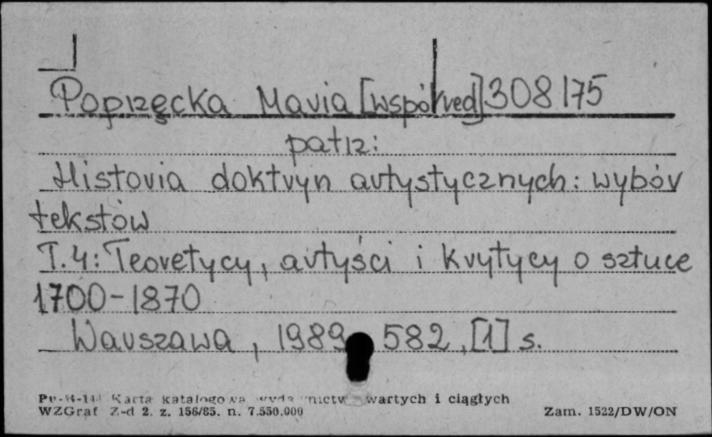 Poprzęcka Maria [współred] 308175
patrz:
Historia doktryn artystycznych: wybór
tekstów
T.4: Teoretycy, artyści i krytycy o sztuce
1700-1870
Warszawa, 1989 582, [1] s.
Karta katalogowa wartych i ciągłych
WZGraf Z-d 2. z. 156/85. n. 7.550.000 Zam. 1522/DW/ON